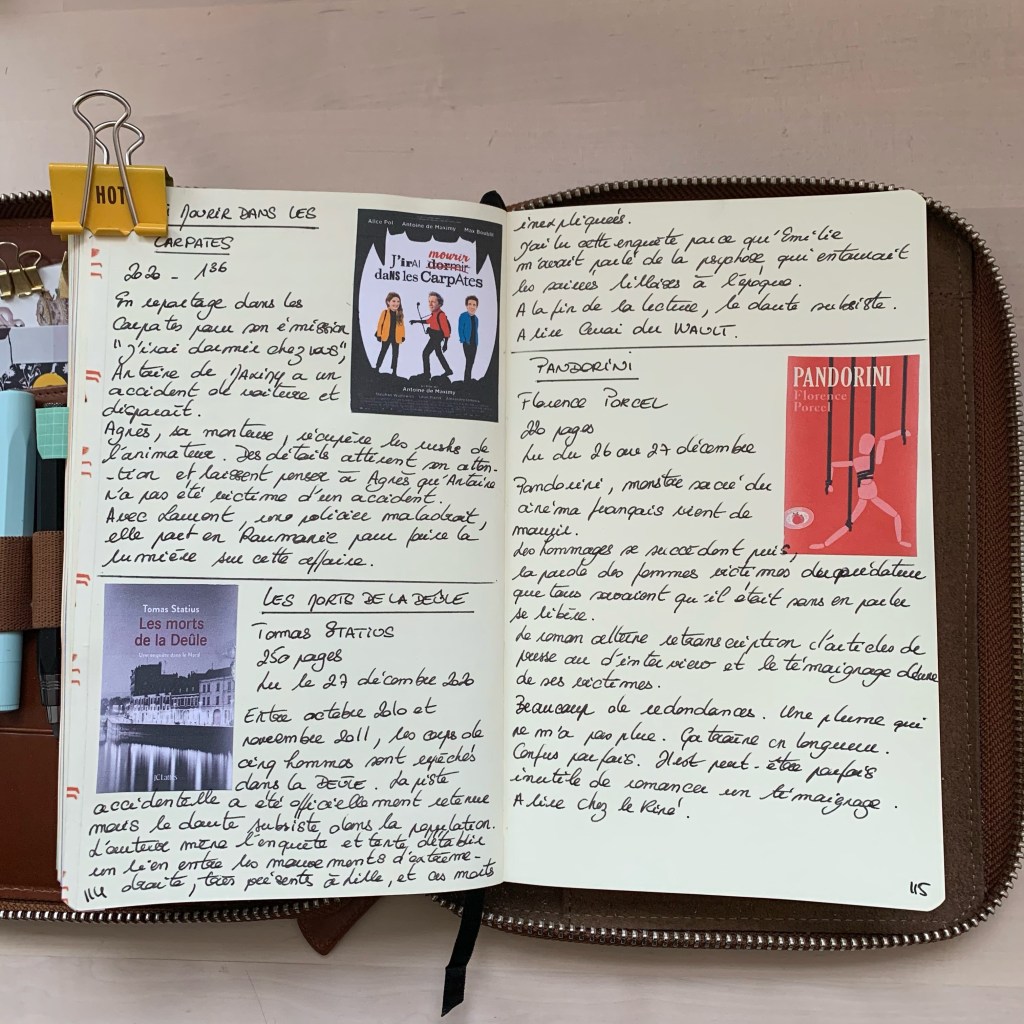 HOT
i MOURIR DANS LES
CARPATES
2020 - 1h36
En reportage dans les
Carpates pour son émission
"J'irai dormir chez vous",
Antoine de Maximy a un
accident de voiture et
disparait.
Agnès, sa monteuse, récupère les rushs de
l'animateur. Des détails attirent son atten-
-tion et laissent penser à Agnès qu'Antoine
n'a pas été victime d'un accident.
Avec Laurent, une policier maladroit,
elle part en Roumanie pour faire la
lumière sur cette affaire.
Alice Pol Antoine de Maximy Max Boublil
mourir
J'irAI dormir
daNS les CarpAtes
Antoine de Maximy
Tomas Statius
Les morts
de la Deûle
Une enquête dans le Nord
JCLattès
LES MORTS DE LA DEÛLE
Tomas STATIUS
250 pages
Lu le 27 décembre 2020
Entre octobre 2010 et
novembre 2011, les corps de
cinq hommes sont repêchés
dans la DEÛLE. La piste
accidentelle a été officiellement retenue
mais le doute subsiste dans la population.
L'auteur mène l'enquête et tente d'établir
un lien entre les mouvements d'extrême-
droite, très présents à Lille, et ces morts
114
inexpliquées.
J'ai lu cette enquête parce qu'Emilie
m'avait parlé de la psychose qui entourait
les soirées lilloises à l'époque.
A la fin de la lecture, le doute subsiste.
A lire Quai du WAULT.
PANDORINI
Florence PORCEL
220 pages
Lu du 26 au 27 décembre
Pandorini, monstre sacré du
cinéma français vient de
mourir.
Les hommages se succèdent puis,
la parole des femmes victimes du prédateur
que tous savaient qu'il était sans en parler
se libère.
Le roman alterne retranscription d'articles de
presse ou d'interview et le témoignage d'une
de ses victimes.
Beaucoup de redondances. Une plume qui
ne m'a pas plue. Ça traîne en longueur.
Confus parfois. Il est peut-être parfois
inutile de romancer un témoignage.
A lire chez le Kiné.
PANDORINI
Florence
Porcel
115